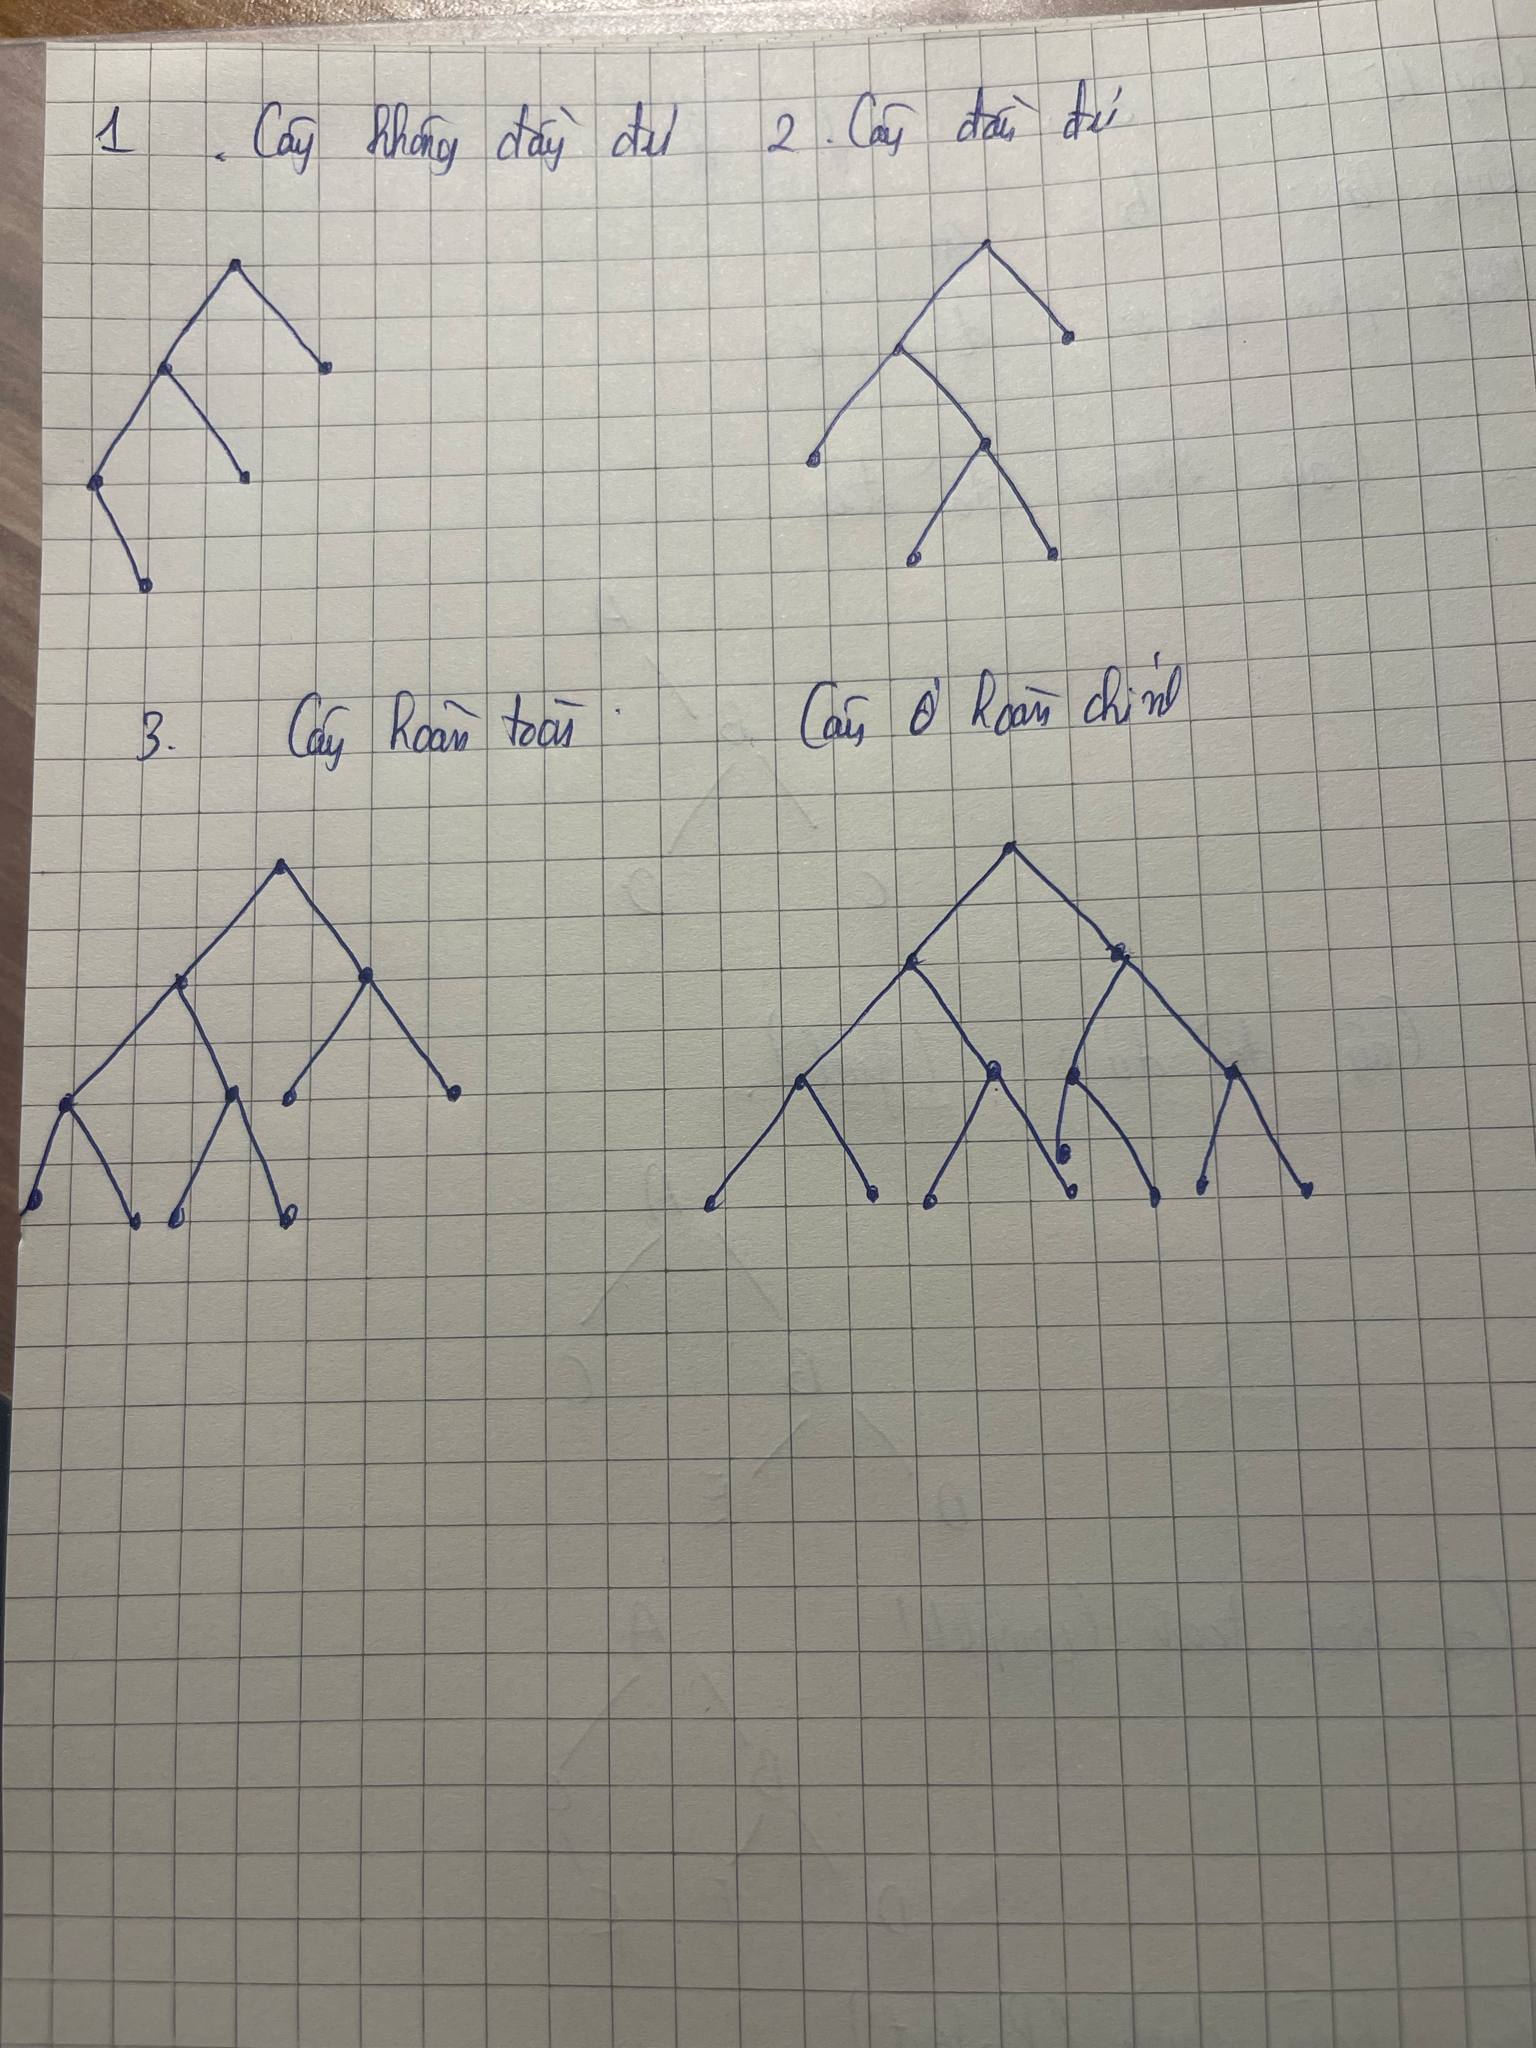 1 . Cây không đầy đủ
2 . Cây đầy đủ
3. Cây hoàn toàn
Cây hoàn chỉnh